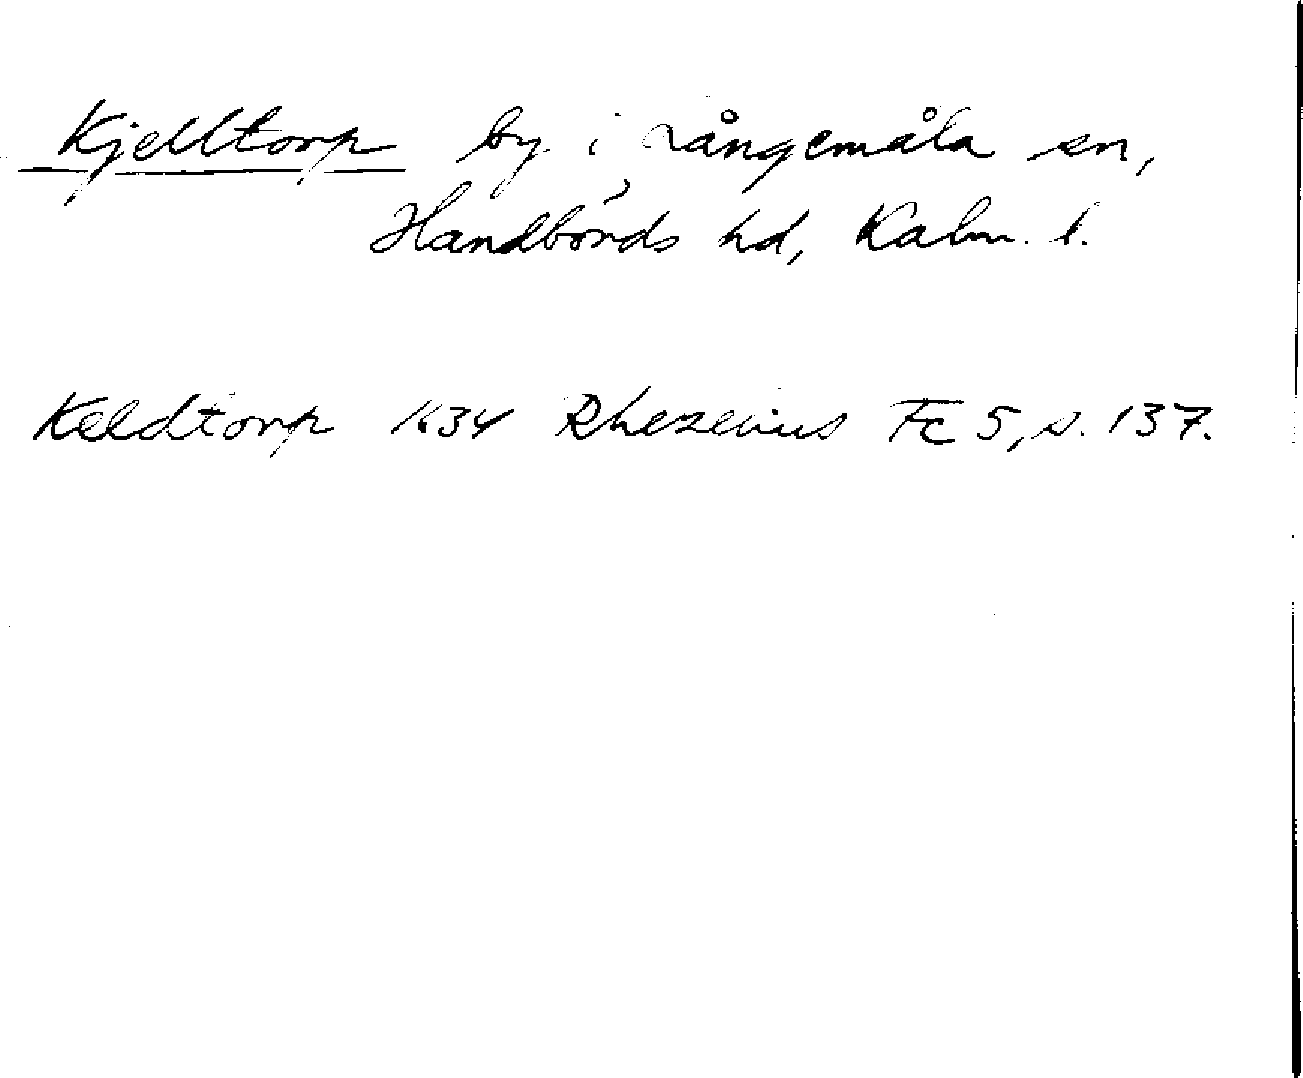 Kjelltorp by i Långemåla sn,
Handbörds hd, Kalm. l.
Keldtorp 1634 Rhezelius Fc 5, s. 137.